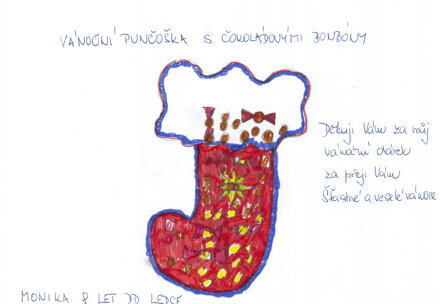 VÁNOČNÍ PUNČOŠKA S ČOKOLÁDOVÝMI BONBÓNY
Děkuji Vám za můj
vánoční dárek
za přeji Vám
Šťastné a veselé vánoce
MONIKA 8 LET DD LEDCE